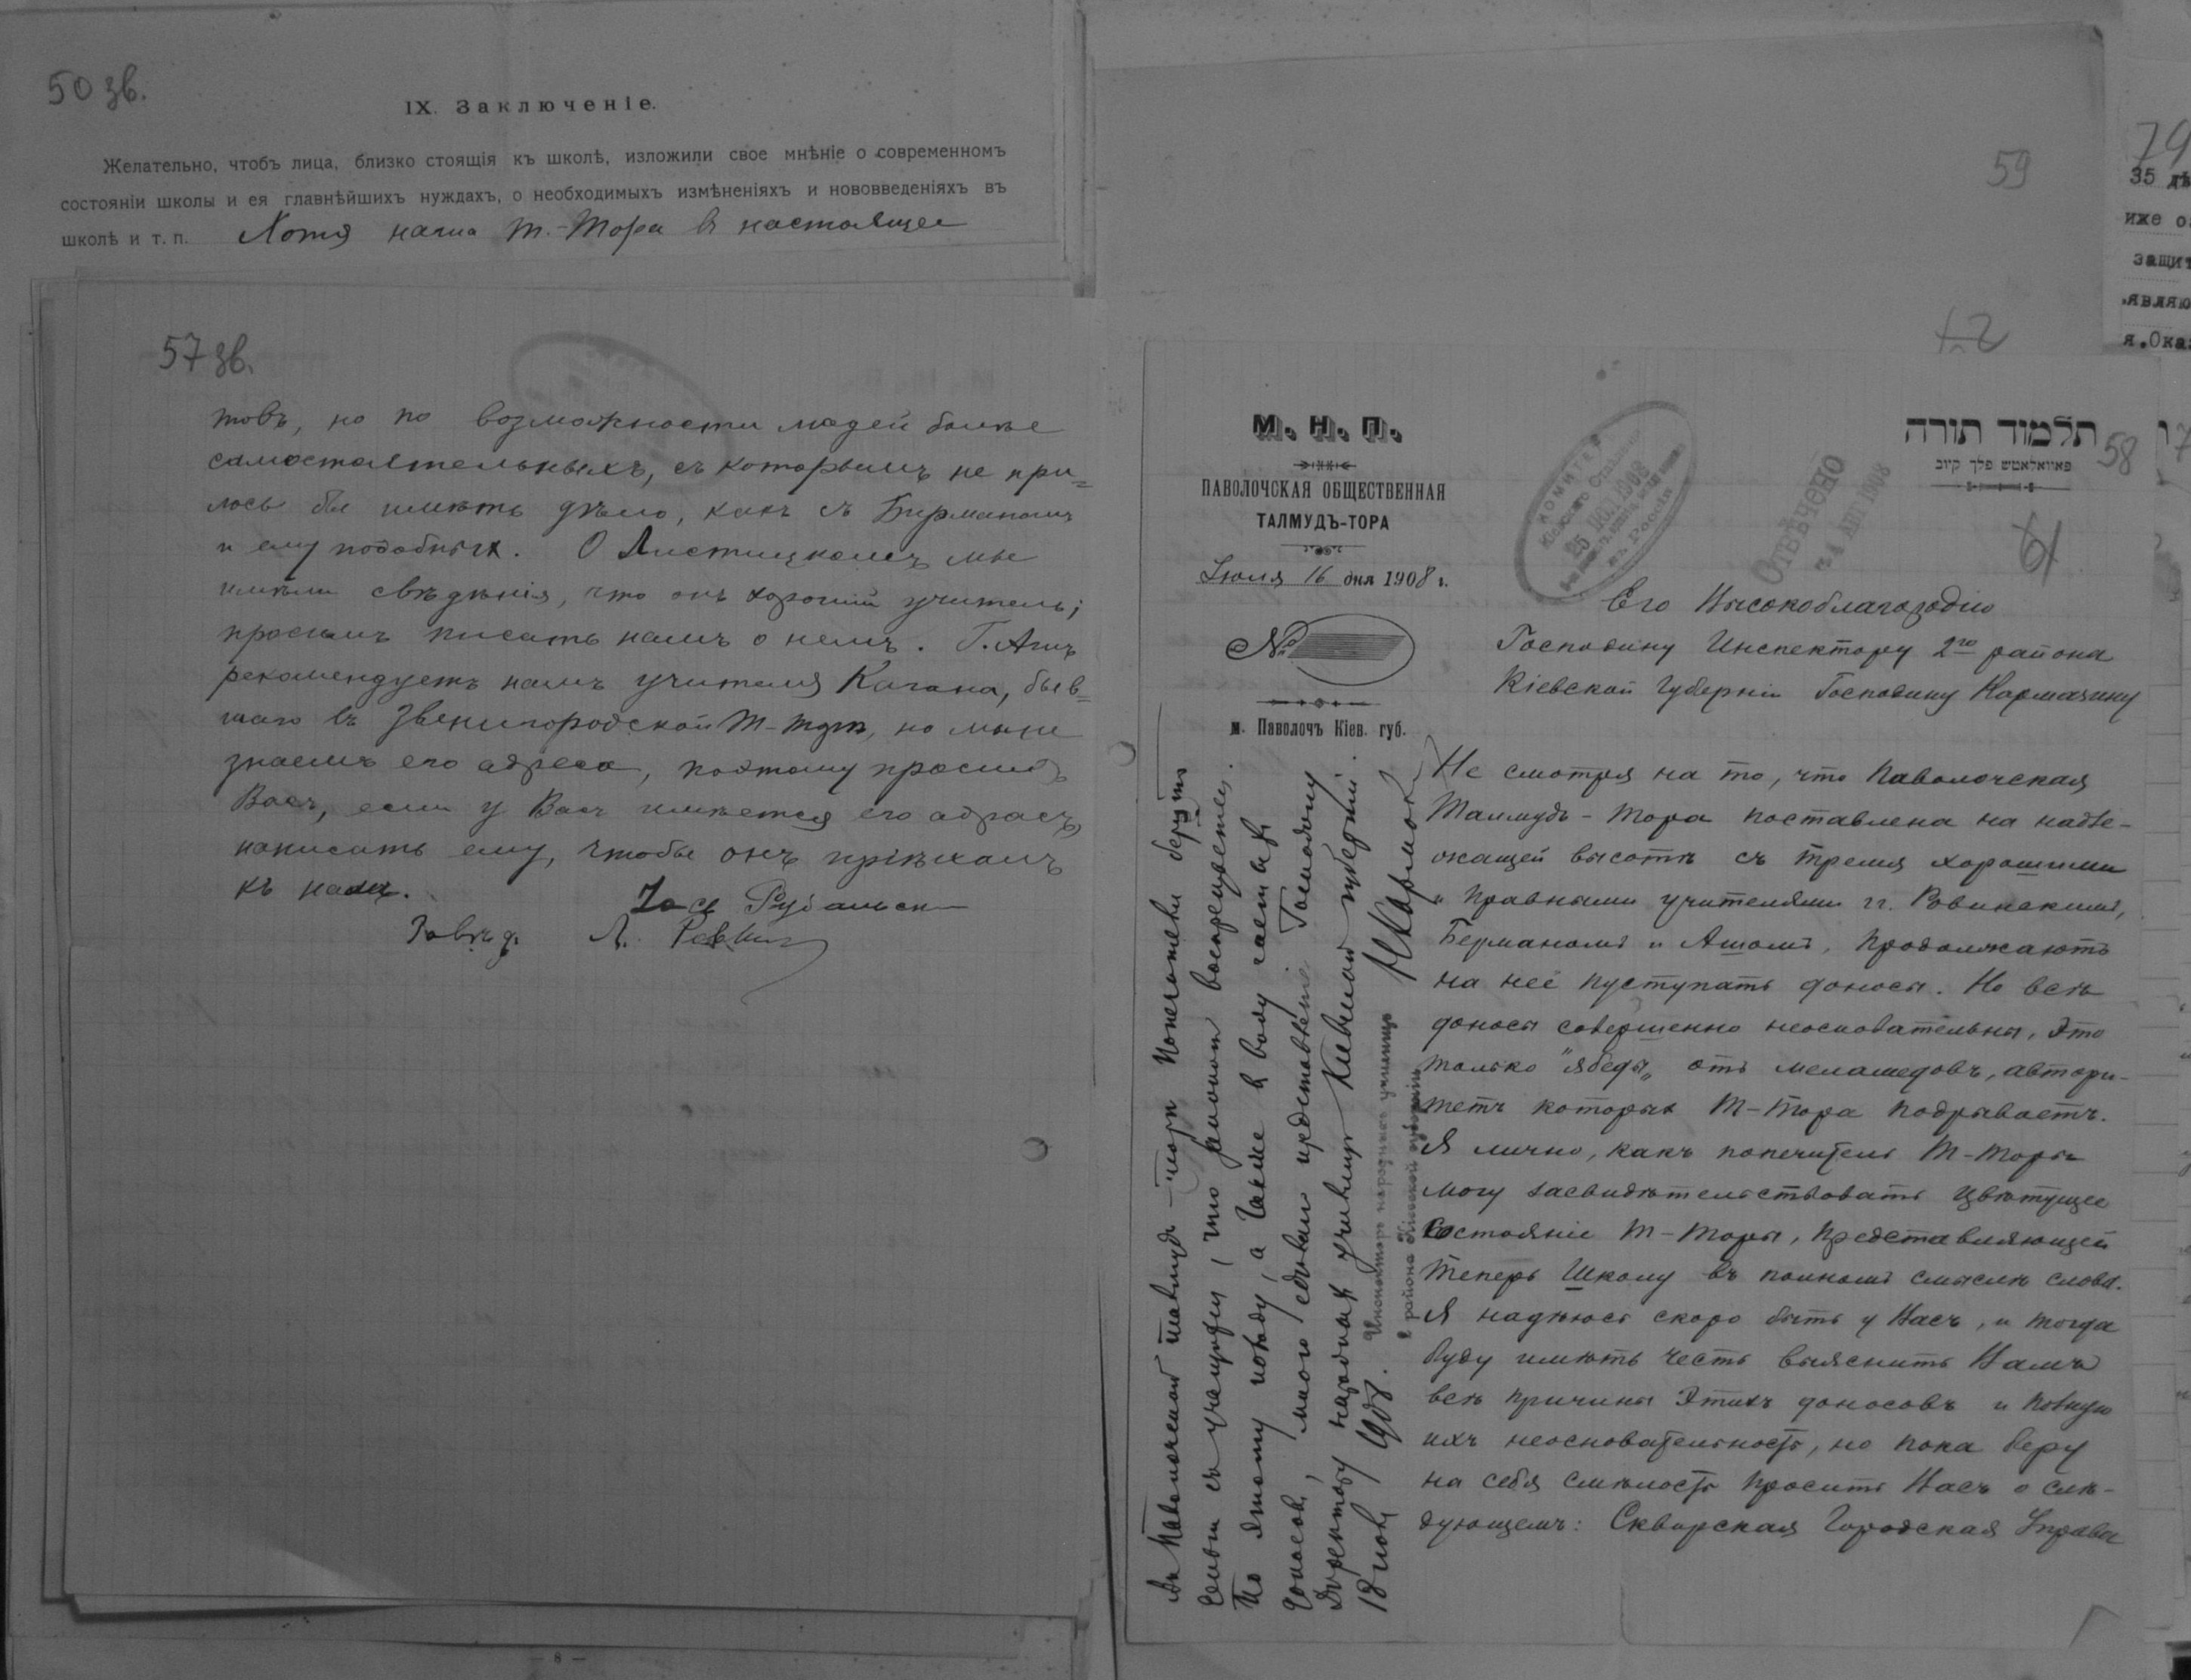 50 зв.
IX. Заключеніе.
Желательно, чтобъ лица, близко стоящія къ школѣ, изложили свое мнѣніе о современномъ
состояніи школы и ея главнѣйшихъ нуждахъ, о необходимыхъ измѣненіяхъ и нововведеніяхъ въ
школѣ и т. п. Хотя наша Т.-Тора в настоящее
57 зв.
товъ, но по возможности людей болѣе
самостоятельныхъ, съ которымъ не при=
лось бы имѣть дѣло, какъ съ Бирманомъ
и ему подобныхъ. О Листицкомъ мы
имѣли свѣдѣнія, что онъ хорошій учитель;
просимъ писать намъ о немъ. Г. Ашъ
рекомендуетъ намъ учителя Кагана, быв=
шаго въ Звенигородской Т-Т, но мы не
знаемъ его адреса, поэтому просимъ
Васъ, если у Васъ имѣется его адресъ,
написать ему, чтобы онъ пріѣхалъ
къ намъ.
Завѣд. Л.
— 8 —
59
58
М. Н. П.
ПАВОЛОЧСКАЯ ОБЩЕСТВЕННАЯ
ТАЛМУДЪ-ТОРА
Іюля 16 дня 1908 г.
№
м. Паволочъ Кіев. губ.
КОМИТЕТ
25 1908
въ Россіи
ОТВѢЧЕНО
АВГ 1908
תלמוד תורה
פאוואלאטש פלך קיוב
61
Его Высокоблагородію
Господину Инспектору 2го района
Кіевской Губерніи Господину Кармазину
Не смотря на то, что Паволочская
Талмудъ-Тора поставлена на надле-
жащей высотѣ съ тремя хорошими
и правными учителями гг. Ровинскимъ,
Берманомъ и Ашомъ, продолжаютъ
на неё пуступать доносы. Но всѣ
доносы совершенно неосновательны, это
только "ябеды" отъ меламедовъ, автори-
тетъ которыхъ Т-Тора подрываетъ.
Я лично, какъ попечитель Т-Торы
могу засвидѣтельствовать цвѣтущее
состояніе Т-Торы, представляющей
теперь Школу въ полномъ смыслѣ слова.
Я надѣюсь скоро быть у Васъ, и тогда
буду имѣть честь выяснить Вамъ
всѣ причины этихъ доносовъ и полную
ихъ неосновательность, но пока беру
на себя смѣлость просить Васъ о слѣ-
дующемъ: Сквирская Городская Управа
Въ Паволочской талмудъ-торѣ попечители берутъ
съ учащихся, что закономъ воспрещается.
По этому поводу, а также в виду частыхъ
доносовъ, мною сдѣлано представленіе Господину
Директору народныхъ училищъ Кіевской губерніи.
18 1908.
Инспекторъ народныхъ училищъ
2 района Кіевской губерніи
79
35
иже о
защит
являю
я.Ока